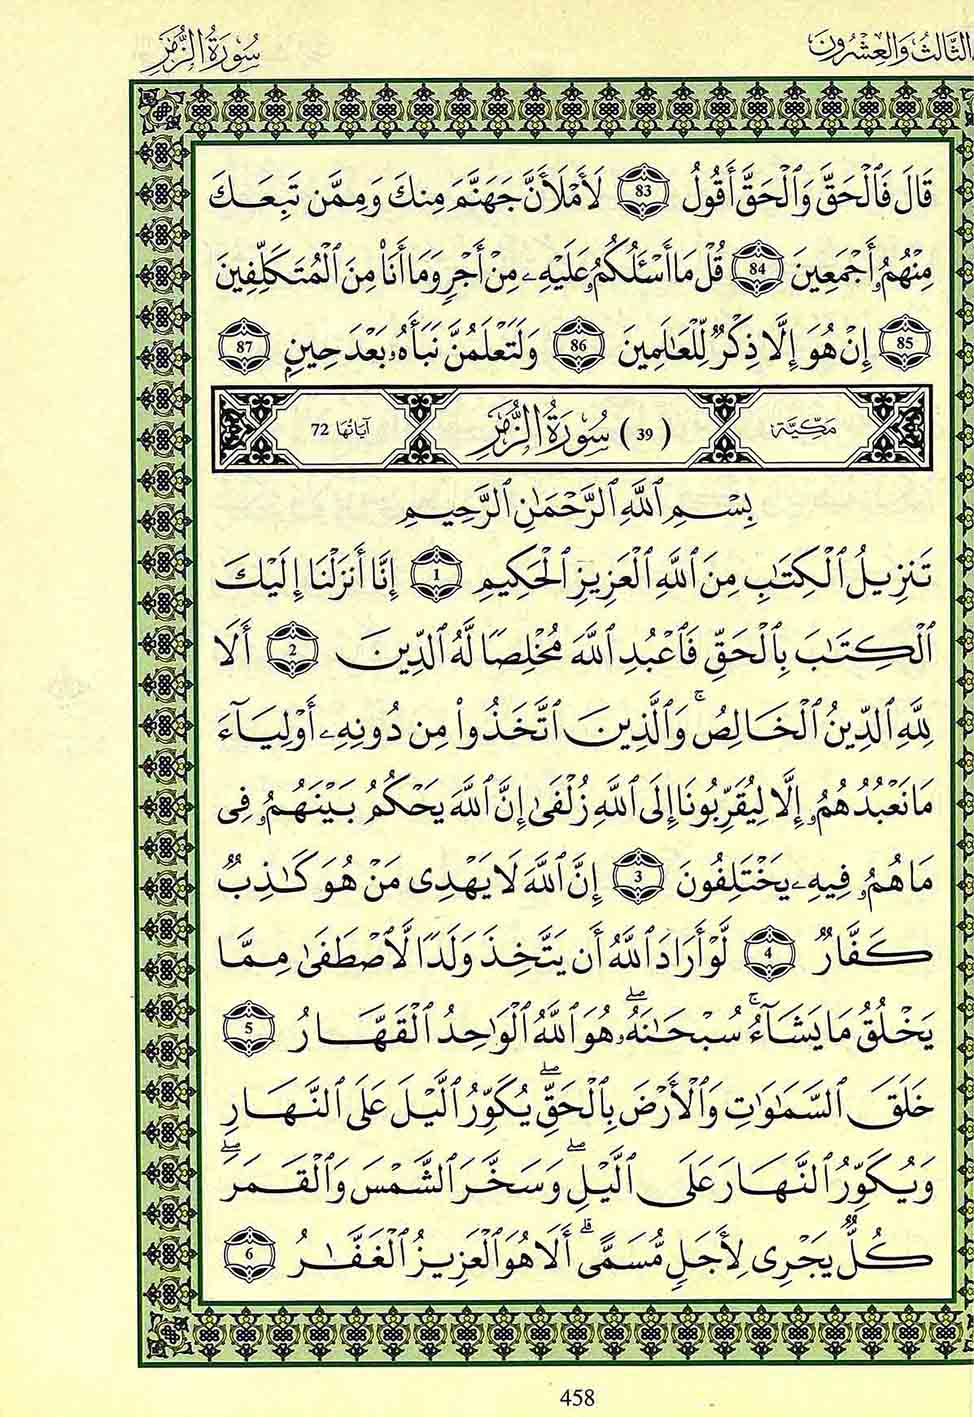 الثَّالِثُ وَالعِشْرُونَ سُورَةُ الزُّمَرِ
قَالَ فَٱلْحَقَّ وَٱلْحَقَّ أَقُولُ 83 لَأَمْلَأَنَّ جَهَنَّمَ مِنكَ وَمِمَّن تَبِعَكَ
مِنْهُمُۥٓ أَجْمَعِينَ 84 قُلْ مَا أَسْـَٔلُكُمُۥ عَلَيْهِۦ مِنْ أَجْرٍ وَمَا أَنَا۠ مِنَ ٱلْمُتَكَلِّفِينَ
85 إِنْ هُوَ إِلَّا ذِكْرٌ لِّلْعَـٰلَمِينَ 86 وَلَتَعْلَمُنَّ نَبَأَهُۥ بَعْدَ حِينٍ 87
مَكِّيَّة (39) سُورَةُ الزُّمَرِ آيَاتُهَا 72
بِسْمِ ٱللَّهِ ٱلرَّحْمَـٰنِ ٱلرَّحِيمِ
تَنزِيلُ ٱلْكِتَـٰبِ مِنَ ٱللَّهِ ٱلْعَزِيزِ ٱلْحَكِيمِ 1 إِنَّا أَنزَلْنَا إِلَيْكَ
ٱلْكِتَـٰبَ بِٱلْحَقِّ فَٱعْبُدِ ٱللَّهَ مُخْلِصًا لَّهُ ٱلدِّينَ 2 أَلَا
لِلَّهِ ٱلدِّينُ ٱلْخَالِصُ ۚ وَٱلَّذِينَ ٱتَّخَذُوا۟ مِن دُونِهِۦ أَوْلِيَآءَ
مَا نَعْبُدُهُمُۥ إِلَّا لِيُقَرِّبُونَا إِلَى ٱللَّهِ زُلْفَىٰ إِنَّ ٱللَّهَ يَحْكُمُ بَيْنَهُمُۥ فِى
مَا هُمُۥ فِيهِۦ يَخْتَلِفُونَ 3 إِنَّ ٱللَّهَ لَا يَهْدِى مَنْ هُوَ كَـٰذِبٌ
كَفَّارٌ 4 لَّوْ أَرَادَ ٱللَّهُ أَن يَتَّخِذَ وَلَدًا لَّٱصْطَفَىٰ مِمَّا
يَخْلُقُ مَا يَشَآءُ ۚ سُبْحَـٰنَهُۥ ۖ هُوَ ٱللَّهُ ٱلْوَاحِدُ ٱلْقَهَّارُ 5
خَلَقَ ٱلسَّمَـٰوَٰتِ وَٱلْأَرْضَ بِٱلْحَقِّ ۖ يُكَوِّرُ ٱلَّيْلَ عَلَى ٱلنَّهَارِ
وَيُكَوِّرُ ٱلنَّهَارَ عَلَى ٱلَّيْلِ ۖ وَسَخَّرَ ٱلشَّمْسَ وَٱلْقَمَرَ ۖ
كُلٌّ يَجْرِى لِأَجَلٍ مُّسَمًّى ۗ أَلَا هُوَ ٱلْعَزِيزُ ٱلْغَفَّـٰرُ 6
458